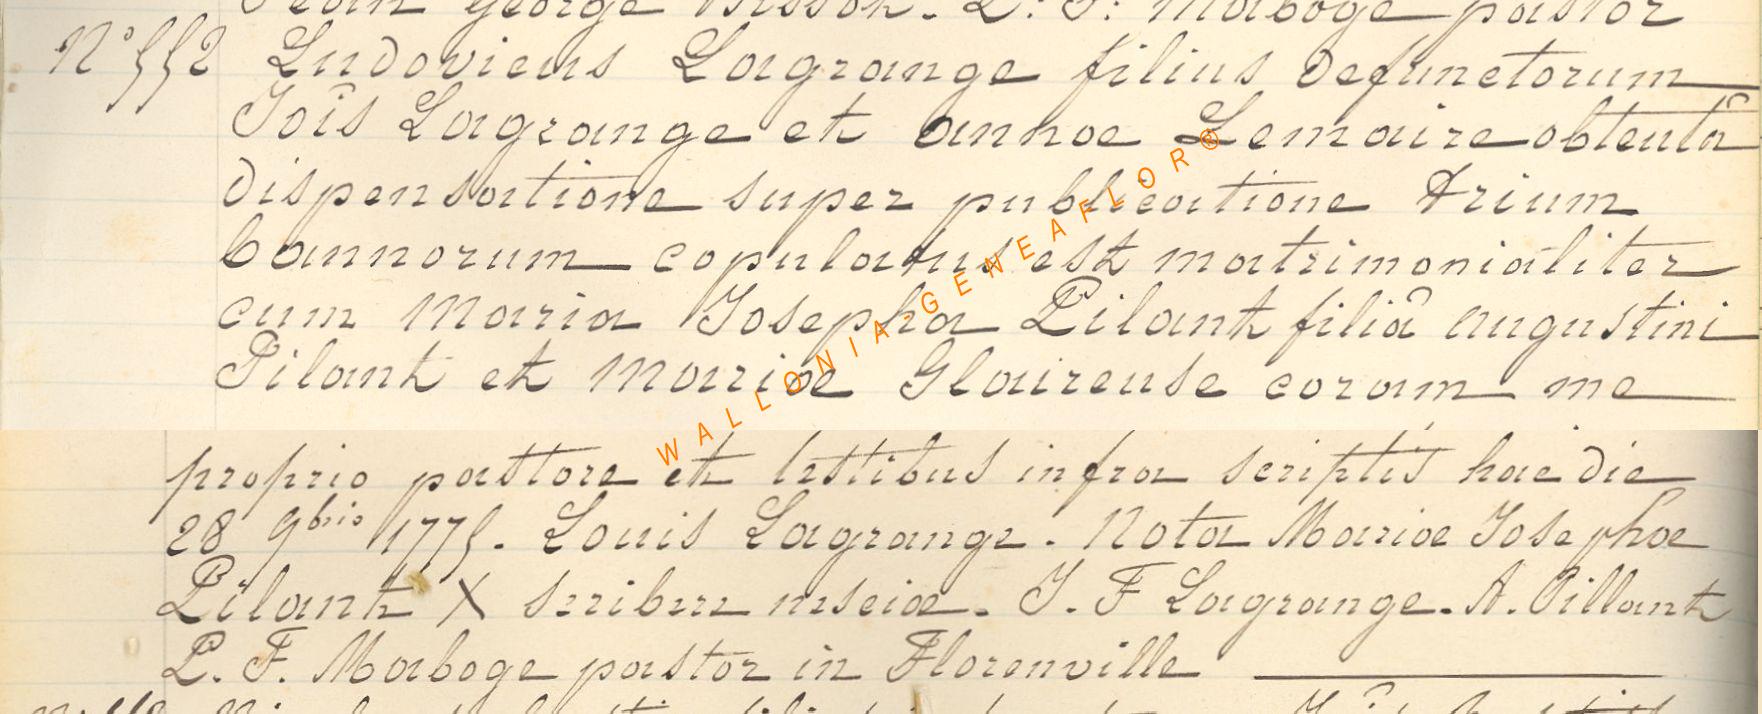 Jean George Bissot. L: F: Maboge pastor
N° 552 Ludovicus Lagrange filius defunctorum
Jois Lagrange et annae Lemaire obtentâ
dispensatione super publicatione trium
bannorum copulatus est matrimonialiter
cum Maria Josepha Pilant filiâ augustini
Pilant et Mariae Glaireuse coram me
proprio pasttore et testtibus infra scriptis hac die
28 9bris 1775. Louis Lagrange. Nota Mariae Josephae
Pilant X scribere nesciae. J. F Lagrange. A. Pillant
L. F. Maboge pastor in Florenville
WALLONIA-GENEAFLOR®